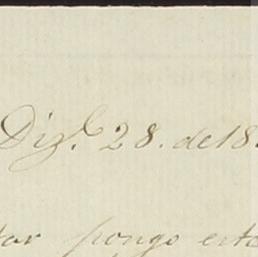 Dizᵉ. 28. de 18
tar pongo esta